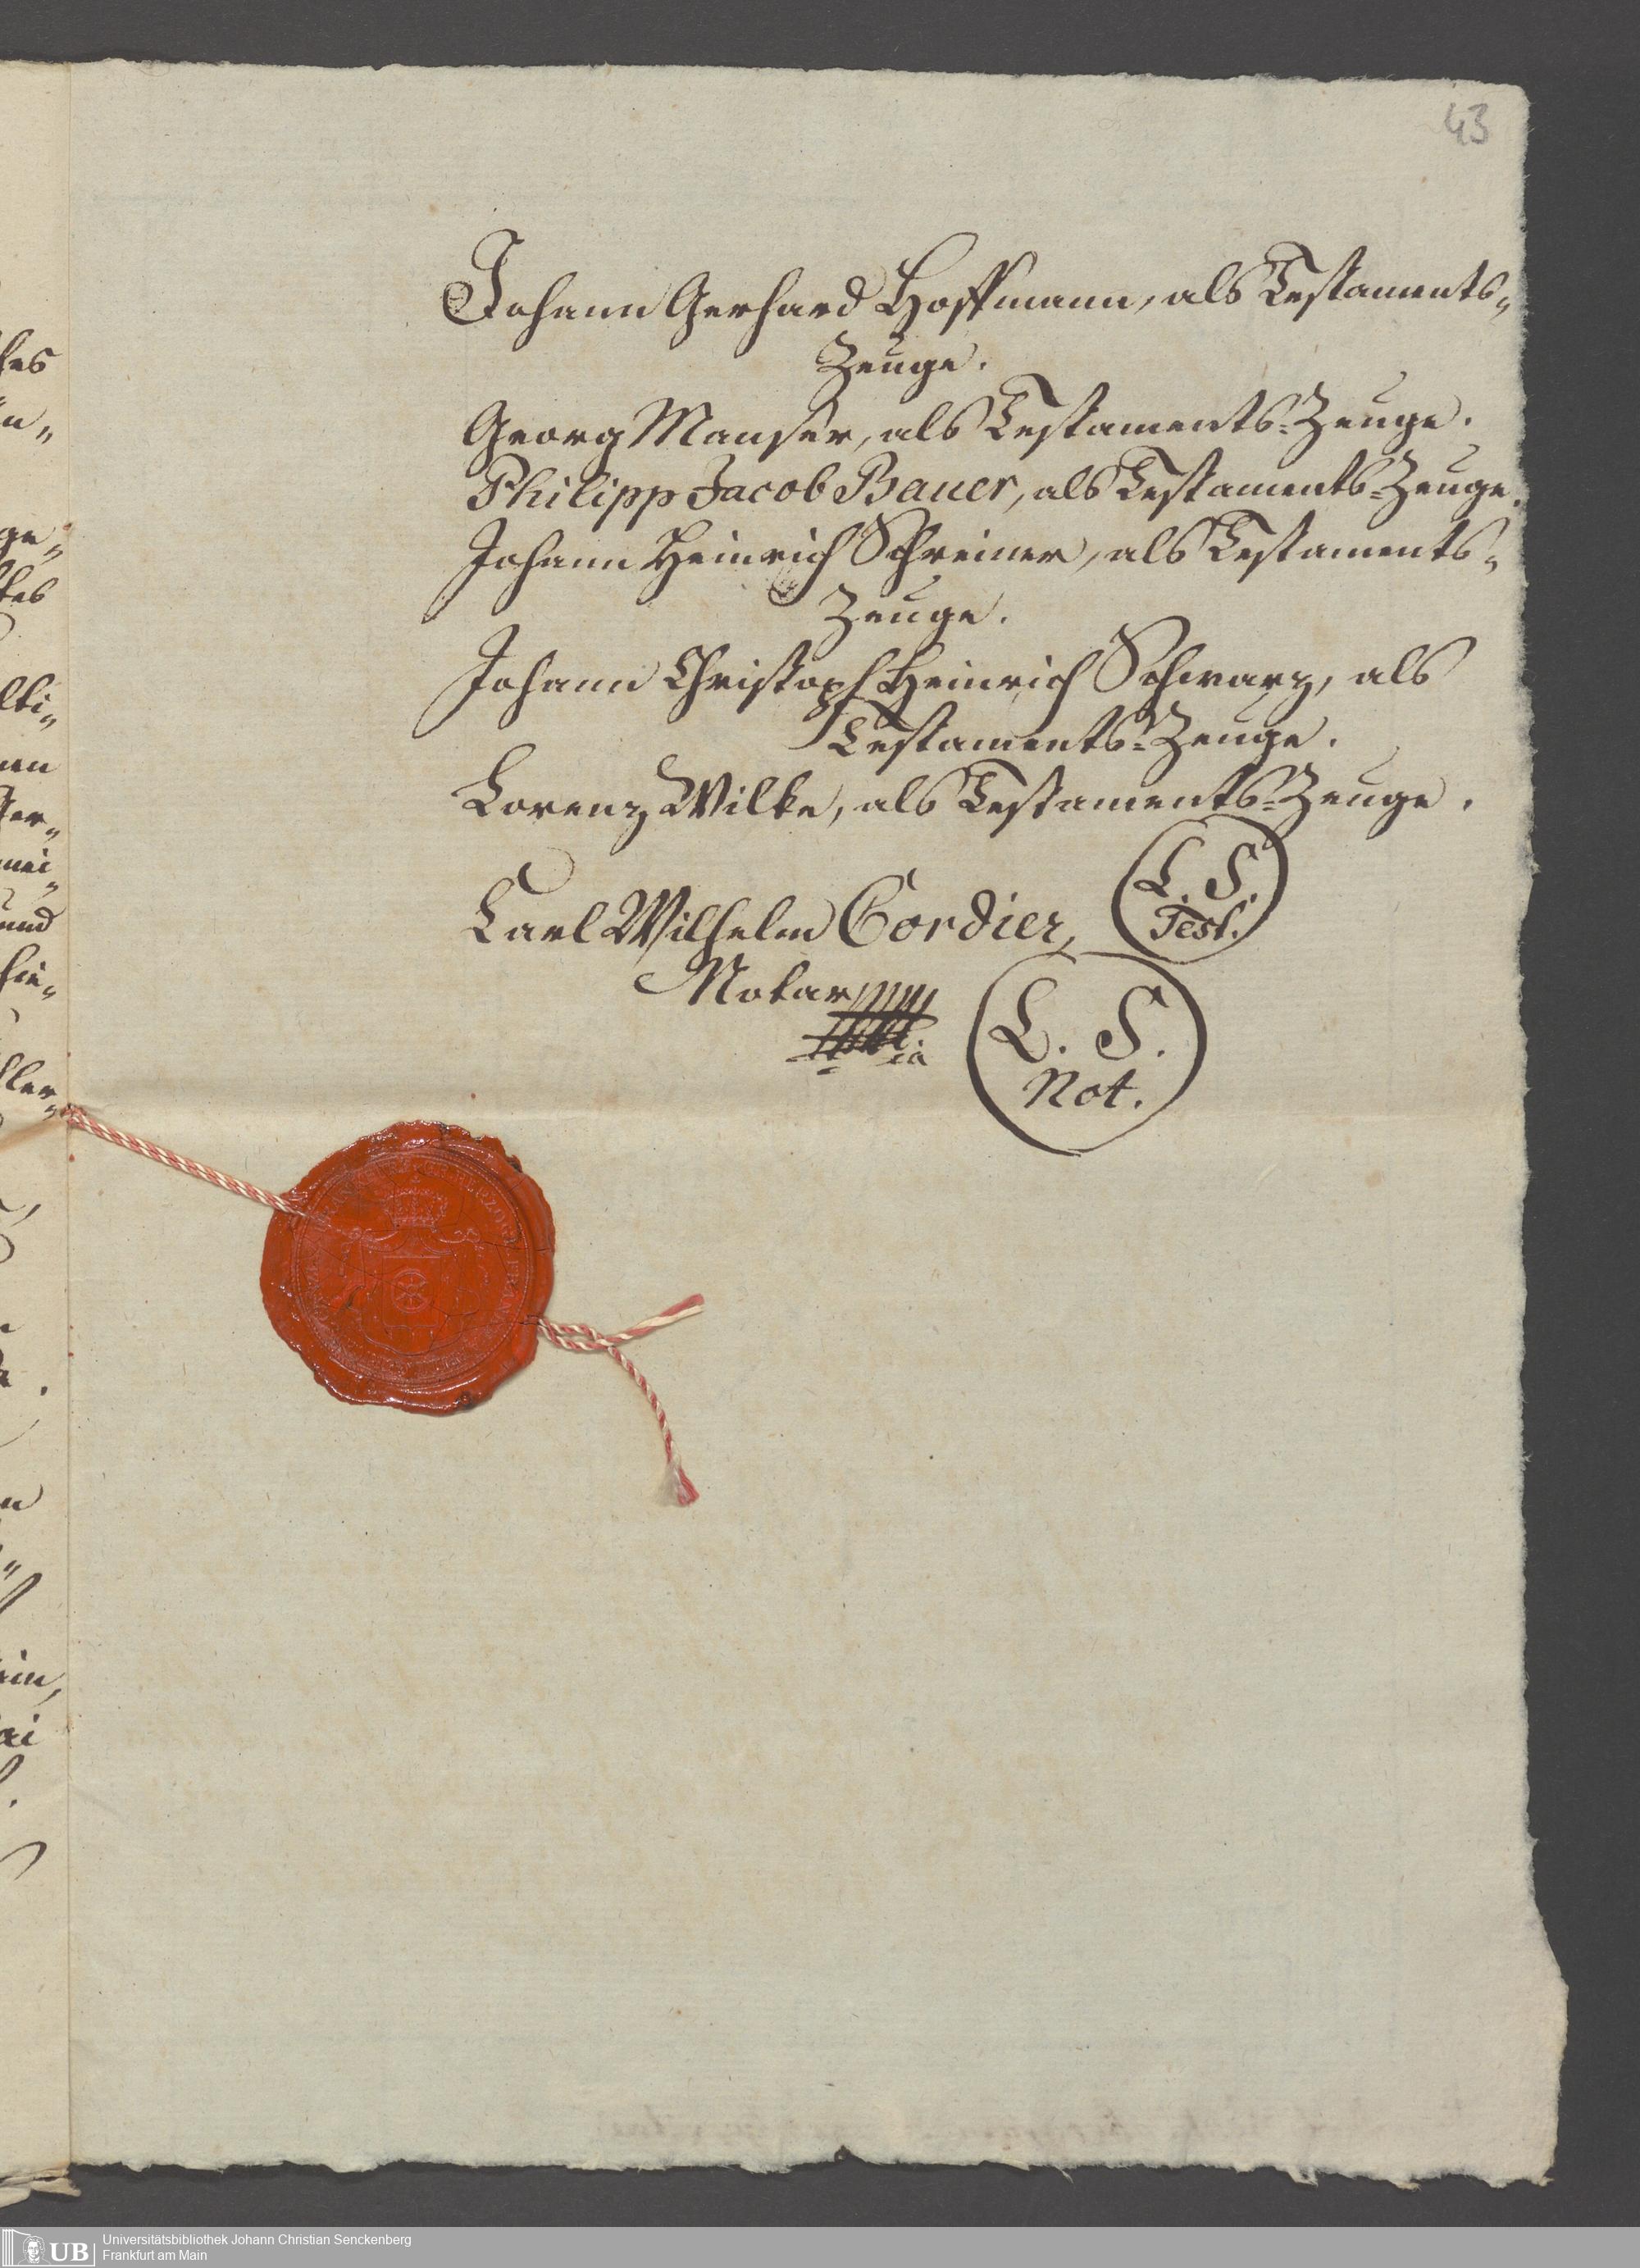 43
Johann Gerhard Hoffmann, als Testaments-
Zeuge.
Georg Manser, als Testaments-Zeuge.
Philipp Jacob Bauer, als Testaments-Zeuge.
Johann Heinrich Schreiner, als Testaments-
Zeuge.
Johann Christoph Heinrich Schwarz, als
Testaments-Zeuge.
Lorenz Wilke, als Testaments-Zeuge.
L. S.
Test.
Carl Wilhelm Cordier,
Notar
L. S.
Not.
UB Universitätsbibliothek Johann Christian Senckenberg
Frankfurt am Main